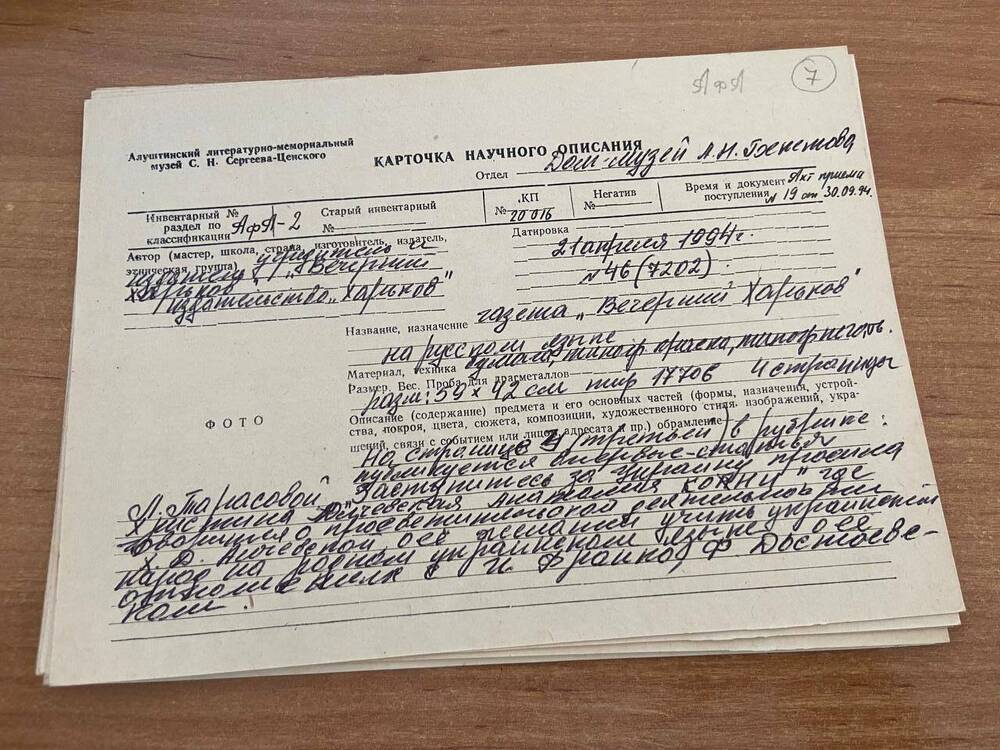 АфА
7
Алуштинский литературно-мемориальный
музей С. Н. Сергеева-Ценского
КАРТОЧКА НАУЧНОГО ОПИСАНИЯ
Отдел Дом-музей А.Н. Бекетова
Инвентарный №
раздел по
классификации АфА-2
Старый инвентарный
№
КП
№ 20016
Негатив
№
Время и документ Акт приема
поступления № 19 от 30.09.94.
Автор (мастер, школа, страна, изготовитель, издатель,
этническая группа) учредитель и
издатель „Вечерний
Харьков"
издательство „Харьков"
Датировка
21 апреля 1994 г.
№ 46 (7202)
Название, назначение газета „Вечерний Харьков"
на русском языке
Материал, техника бумага, типогр. краска, типогр. печать.
Размер. Вес. Проба для драгметаллов
разм: 59 х 42 см тир 17706 4 страницы
ФОТО
Описание (содержание) предмета и его основных частей (формы, назначения, устрой-
ства, покроя, цвета, сюжета, композиции, художественного стиля, изображений, укра-
шений, связи с событием или лицом, адресата и пр.) обрамление
На странице 3 (третьей) в рубрике:
публикуется впервые - статья
Л. Тарасовой „Заступитесь за Украину просила
Христина Алчевская" где
говорится о просветительской деятельности
Х. Д. Алчевской о ее желании учить украинский
народ на родном украинском языке о ее
отношениях с И. Франко, Ф. Достоевс-
ком.